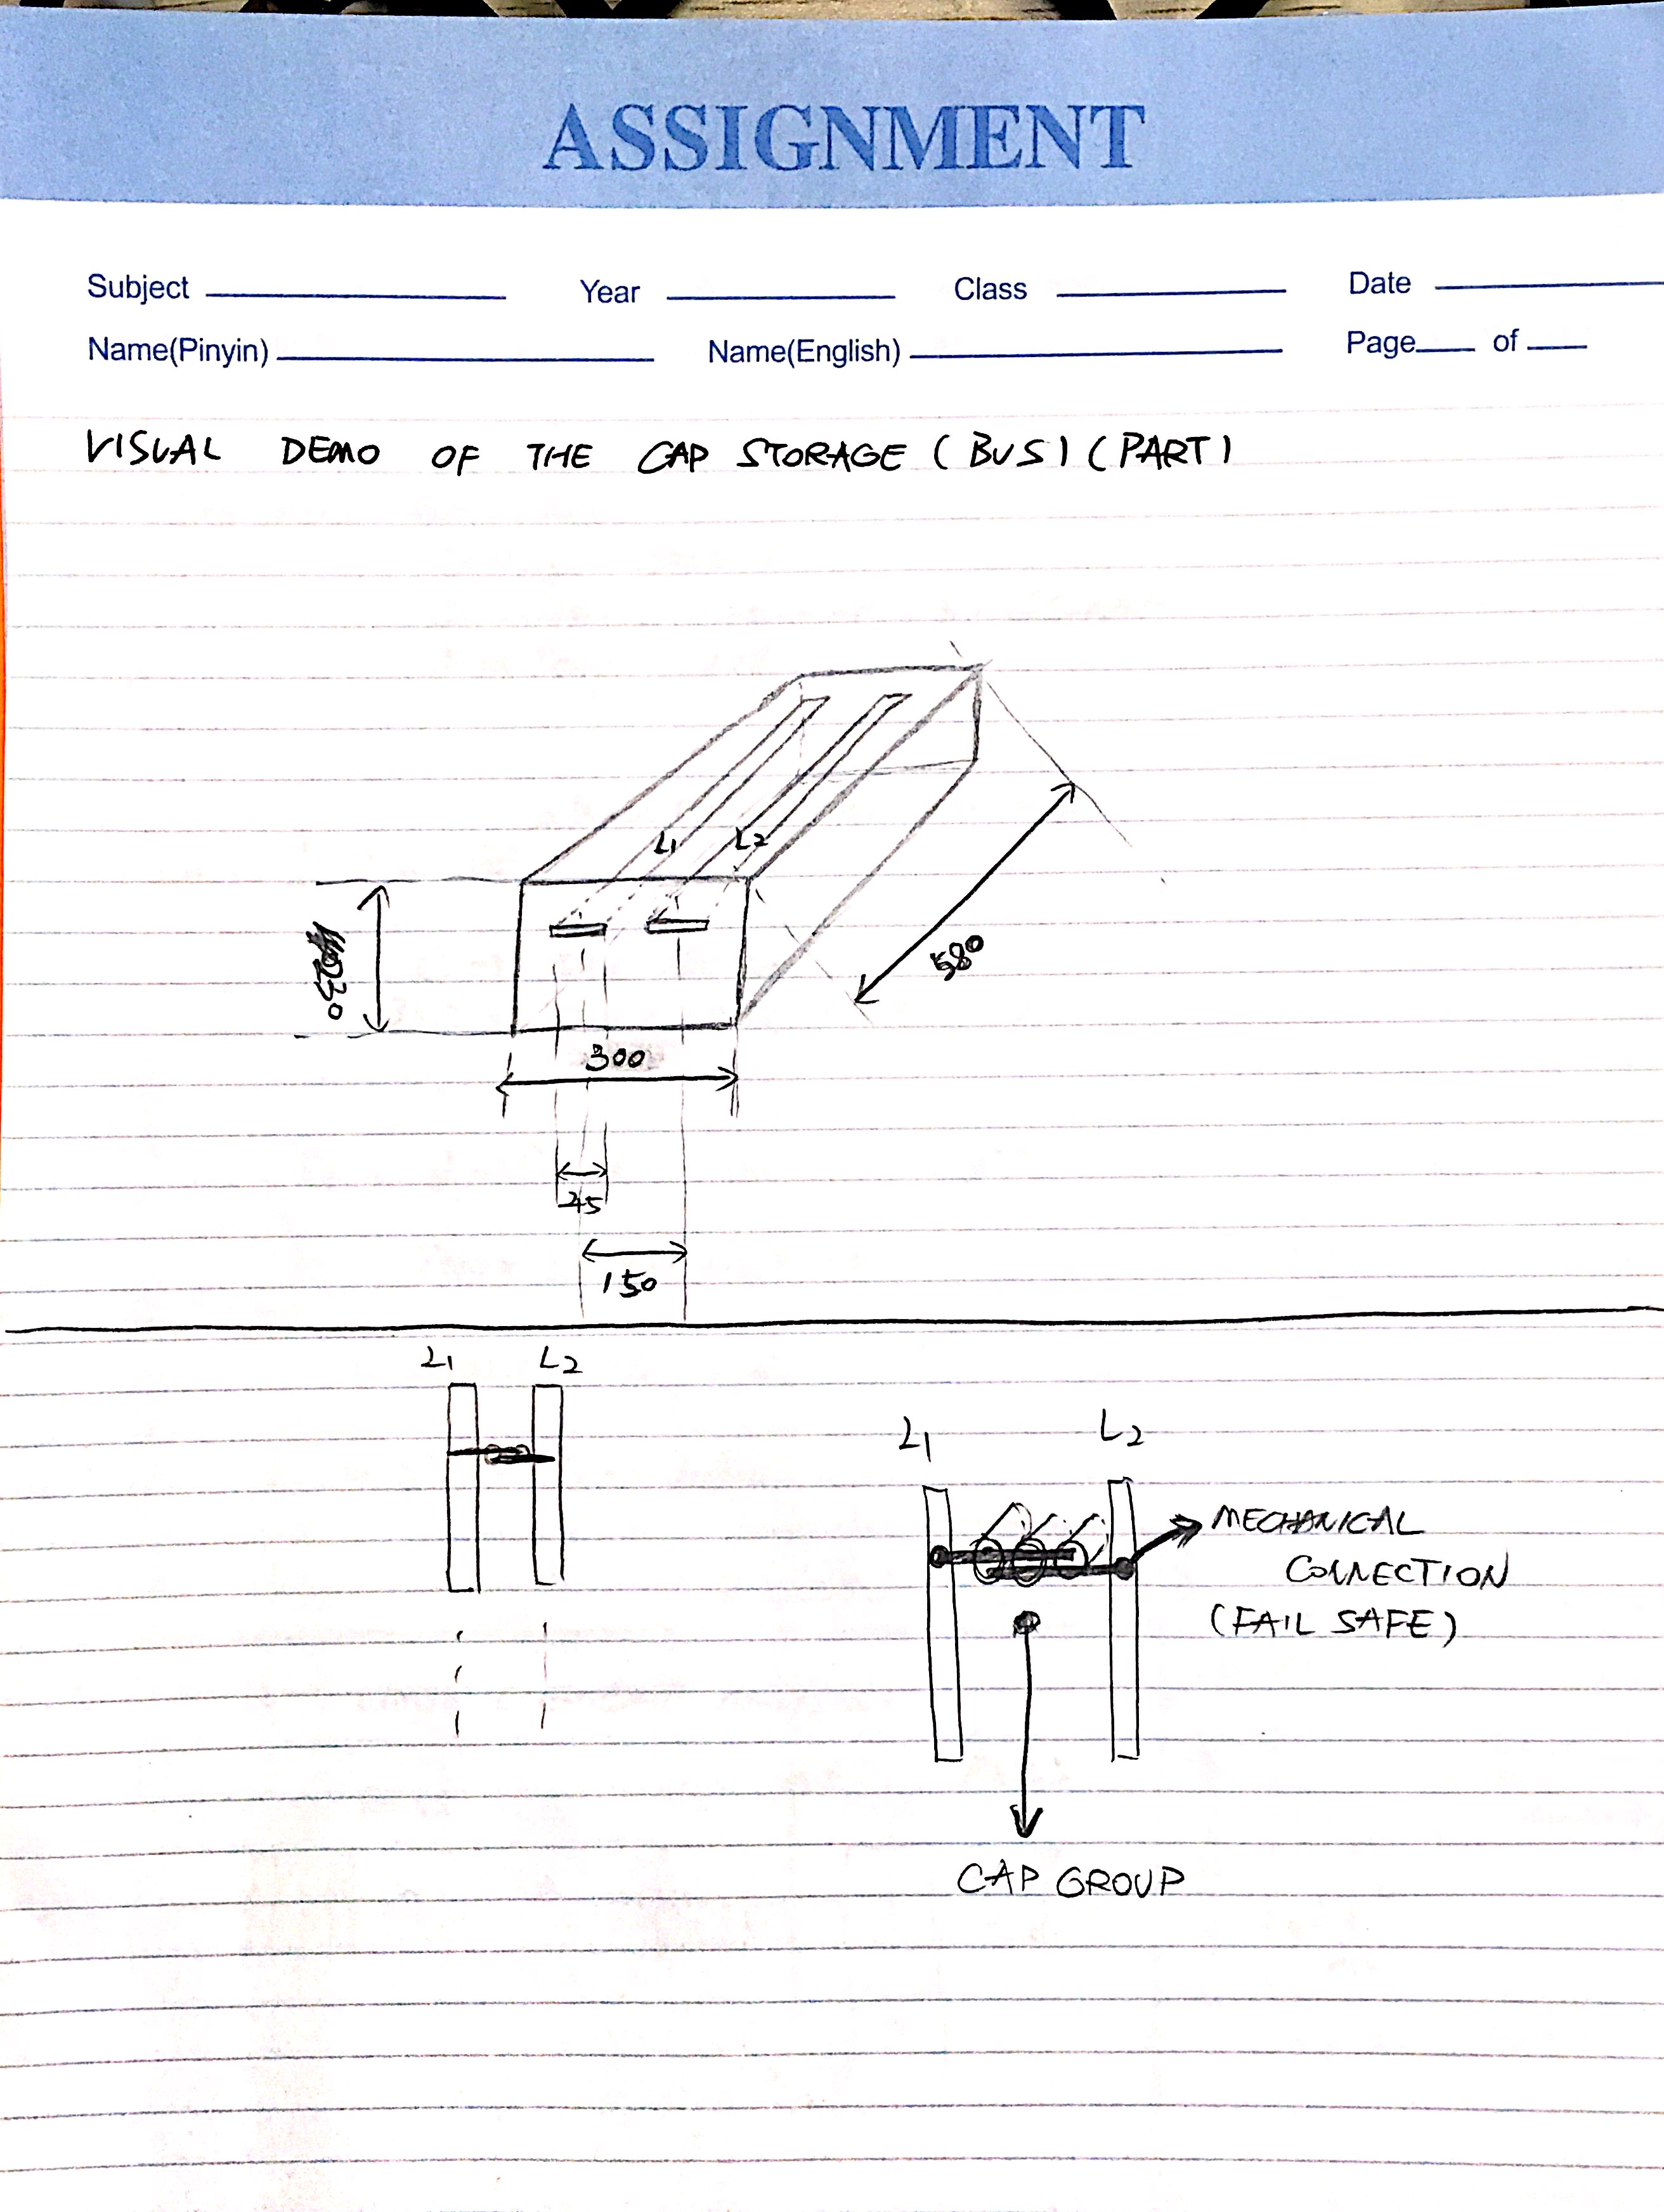 ASSIGNMENT
Subject Year Class Date
Name(Pinyin) Name(English) Page of
VISUAL DEMO OF THE CAP STORAGE (BUS) (PART)
L1 L2
580
300
25
150
L1 L2
L1 L2
MECHANICAL
CONNECTION
(FAIL SAFE)
CAP GROUP